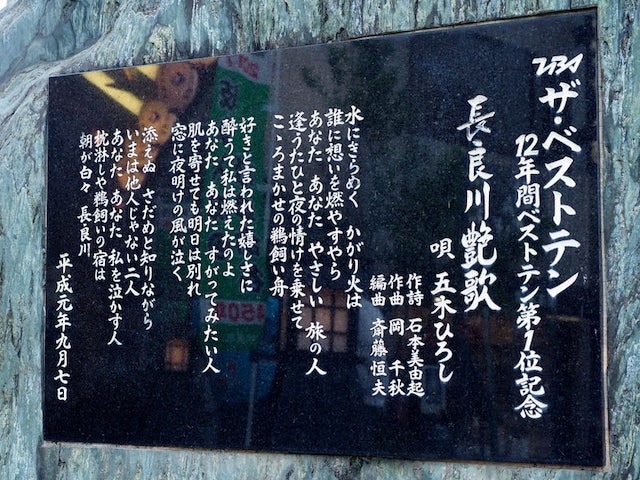 TBS ザ・ベストテン
12年間ベストテン第1位記念
長良川艶歌
唄 五木ひろし
作詩 石本美由起
作曲 岡 千秋
編曲 斎藤恒夫
水にきらめく かがり火は
誰に想いを燃やすやら
あなた あなた やさしい 旅の人
逢うたひと夜の情けを乗せて
こゝろまかせの鵜飼い舟
好きと言われた嬉しさに
酔うて私は燃えたのよ
あなた あなた すがってみたい人
肌を寄せても明日は別れ
窓に夜明けの風が泣く
添えぬ さだめと知りながら
いまは他人じゃない二人
あなた あなた 私を泣かす人
枕淋しや鵜飼いの宿は
朝が白々 長良川
平成元年九月七日